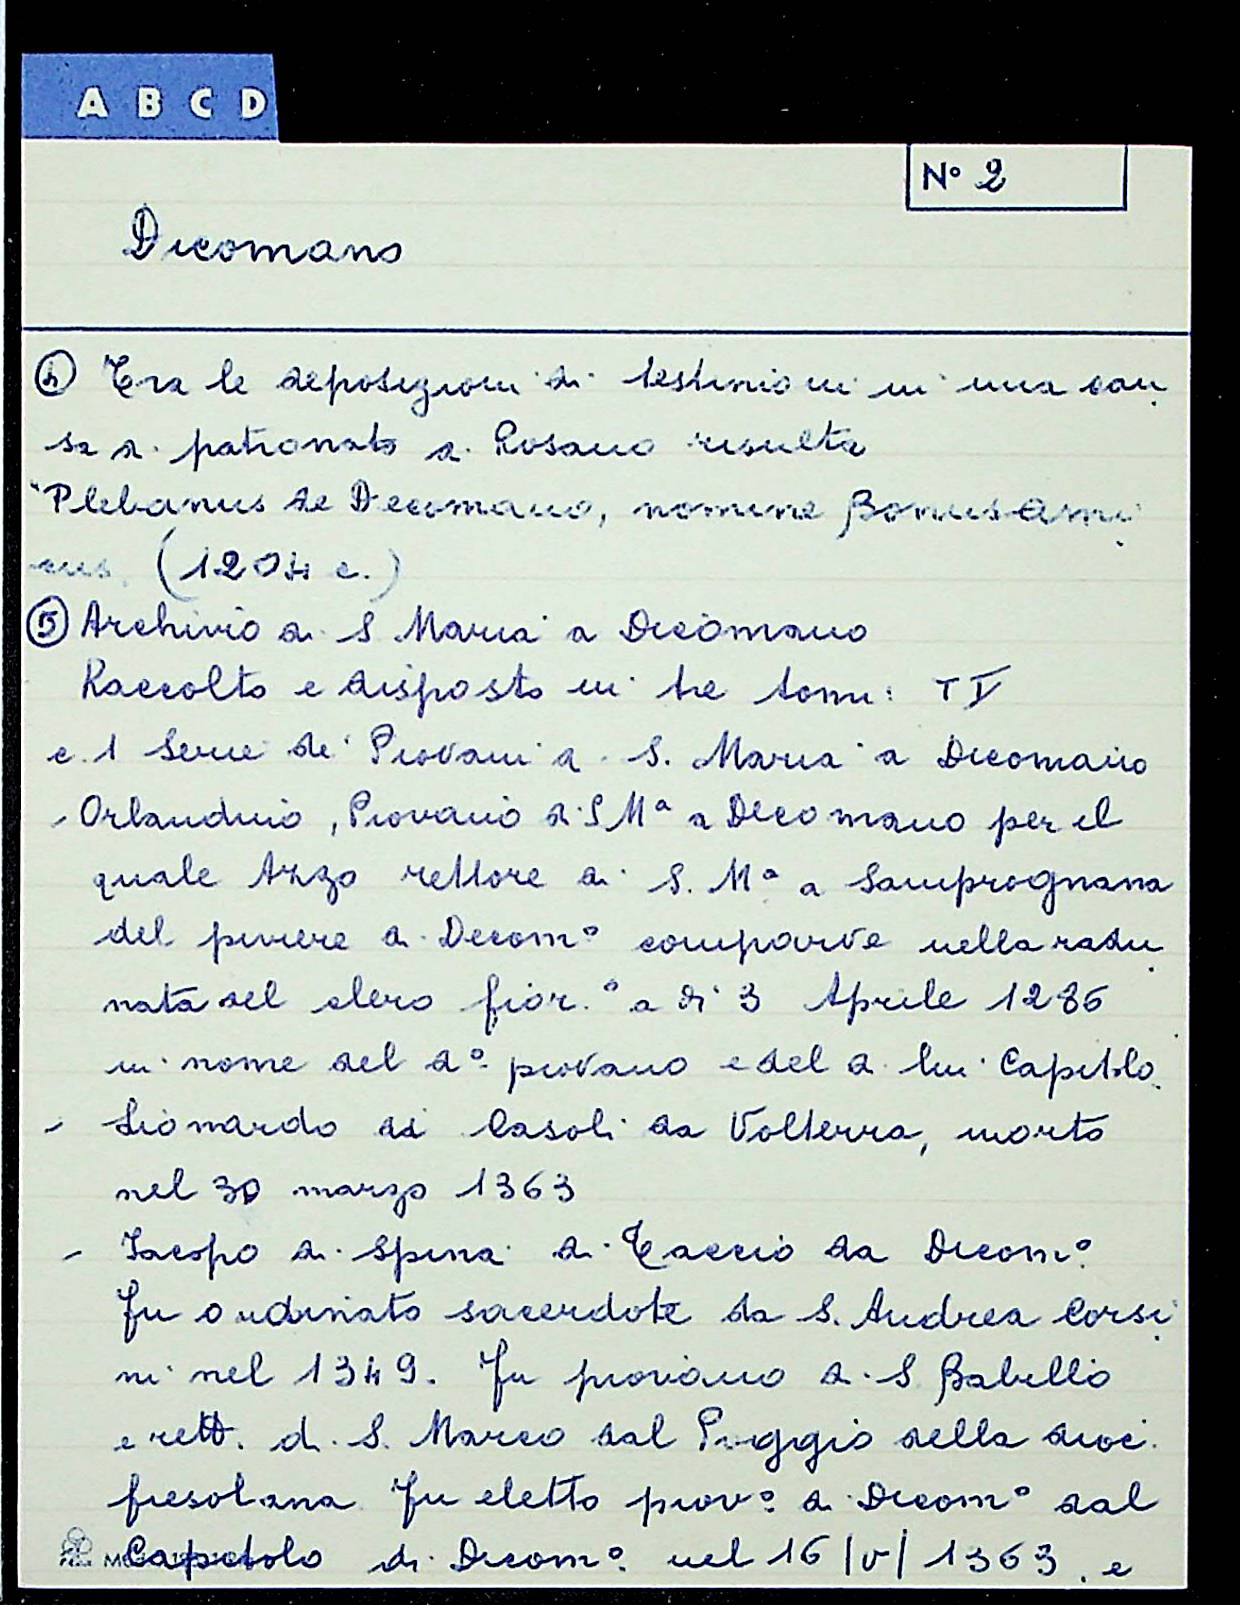 A B C D
N° 2
Dicomano
④ Tra le deposizioni di testimioni in una cau
sa di patronato di Rosano risulta
"Plebanus de Decomano, nomine Bonus Ami
cus. (1204 c.)
⑤ Archivio di S Maria a Dicomano
Raccolto e disposto in tre tomi: T V
c. 1 Serie de' Piovani di S. Maria a Dicomano
- Orlandino, Piovano di S Mª a Dicomano per il
quale Azzo rettore di S. Mª a Samprognana
del piviere di Decom° comparve nella radu
nata del clero fior.° a di 3 Aprile 1286
in nome del d° piovano e del di lui Capitolo.
- Lionardo di Casoli da Volterra, morto
nel 30 marzo 1363
- Iacopo di Spina di Caccio da Dicom°
Fu ordinato sacerdote da S. Andrea Corsi
ni nel 1349. Fu piovano di S Babello
e rett. di S. Marco dal Poggio della dioc.
fiesolana Fu eletto piov° di Dicom° dal
Capitolo di Dicom° nel 16/V/1363. e